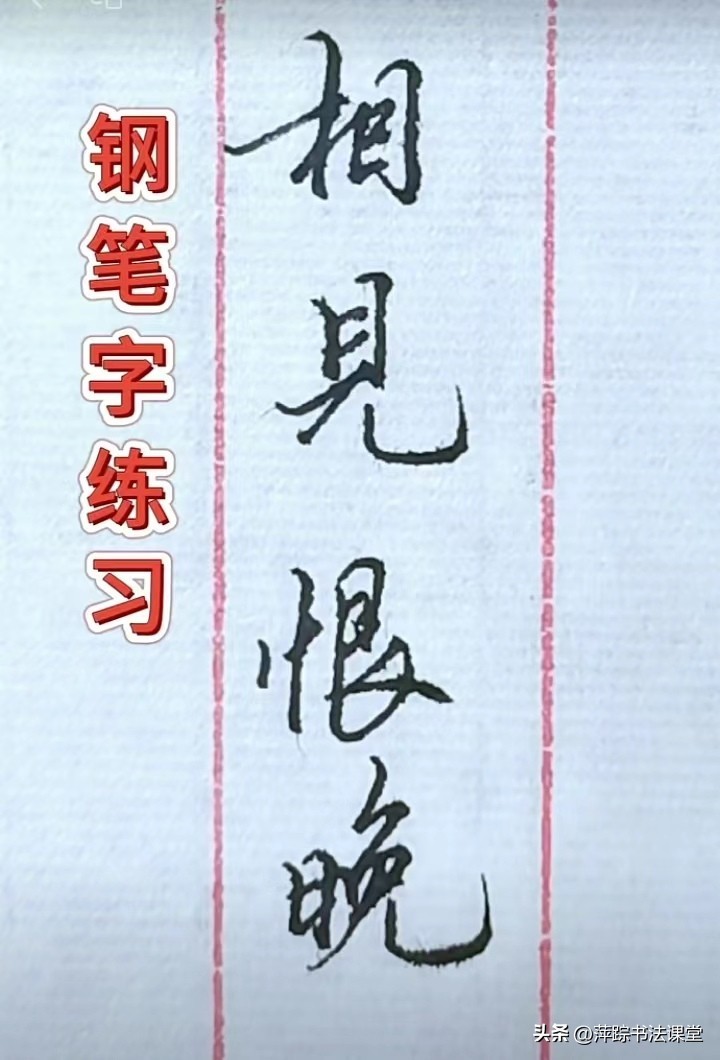 钢笔字练习
相见恨晚
头条 @萍踪书法课堂